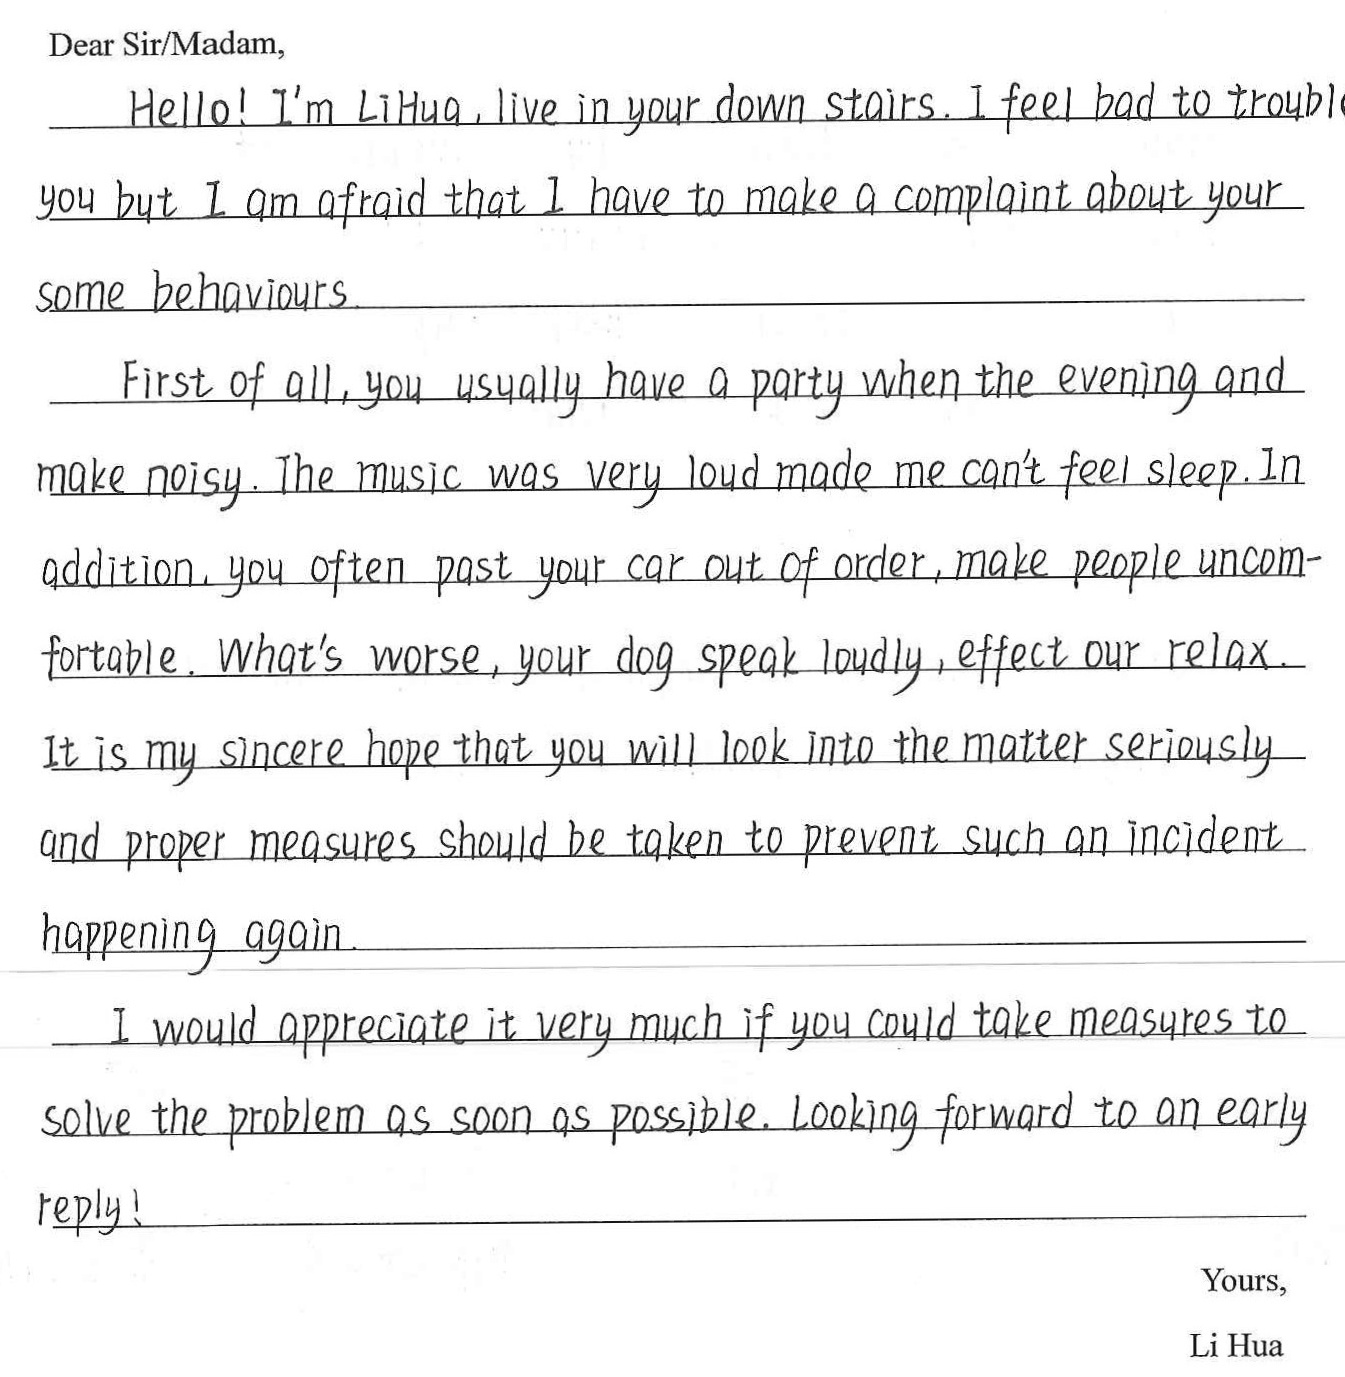 Dear Sir/Madam,
Hello! I'm LiHua, live in your down stairs. I feel bad to trouble
you but I am afraid that I have to make a complaint about your
some behaviours.
First of all, you usually have a party when the evening and
make noisy. The music was very loud made me can't feel sleep. In
addition, you often past your car out of order, make people uncom-
fortable. What's worse, your dog speak loudly, effect our relax.
It is my sincere hope that you will look into the matter seriously
and proper measures should be taken to prevent such an incident
happening again.
I would appreciate it very much if you could take measures to
solve the problem as soon as possible. Looking forward to an early
reply!
Yours,
Li Hua